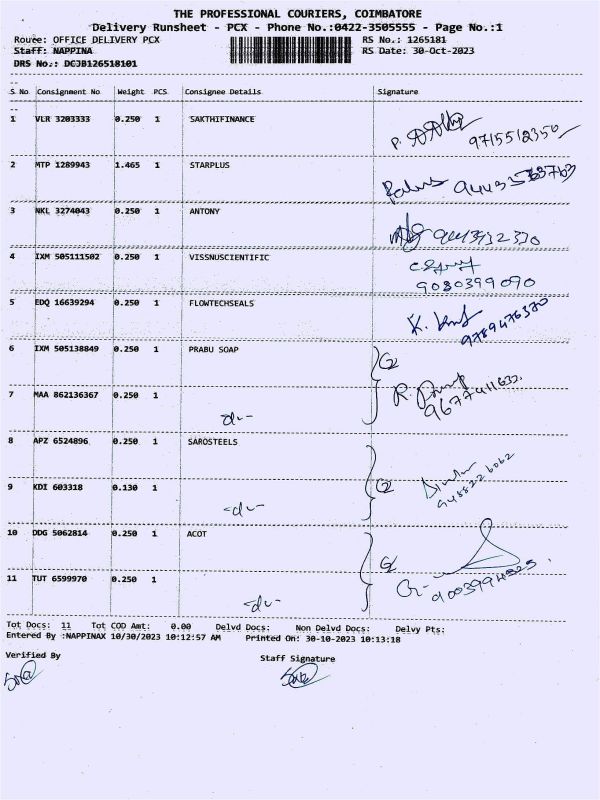 THE PROFESSIONAL COURIERS, COIMBATORE
Delivery Runsheet - PCX - Phone No.:0422-3505555 - Page No.:1
Route: OFFICE DELIVERY PCX RS No.: 1265181
Staff: NAPPINA RS Date: 30-Oct-2023
DRS No.: DCJB126518101
S No Consignment No Weight PCS Consignee Details Signature
1 VLR 3203333 0.250 1 SAKTHIFINANCE
9715512350
2 MTP 1289943 1.465 1 STARPLUS
3 NKL 3274043 0.250 1 ANTONY
4 IXM 505111502 0.250 1 VISSNUSCIENTIFIC
9080399090
5 EDQ 16639294 0.250 1 FLOWTECHSEALS
K.
9789476370
6 IXM 505138849 0.250 1 PRABU SOAP
7 MAA 862136367 0.250 1 -do-
R.
8 APZ 6524896 0.250 1 SAROSTEELS
9488226062
9 KDI 603318 0.130 1 -do-
10 DDG 5062814 0.250 1 ACOT
11 TUT 6599970 0.250 1 -do-
Tot Docs: 11 Tot COD Amt: 0.00 Delvd Docs: Non Delvd Docs: Delvy Pts:
Entered By :NAPPINAX 10/30/2023 10:12:57 AM Printed On: 30-10-2023 10:13:18
Verified By Staff Signature